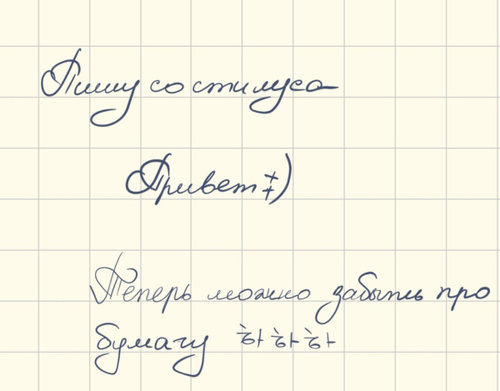 Пишу со стилуса
Привет ⁺₊)
Теперь можно забыть про
бумагу 하하하